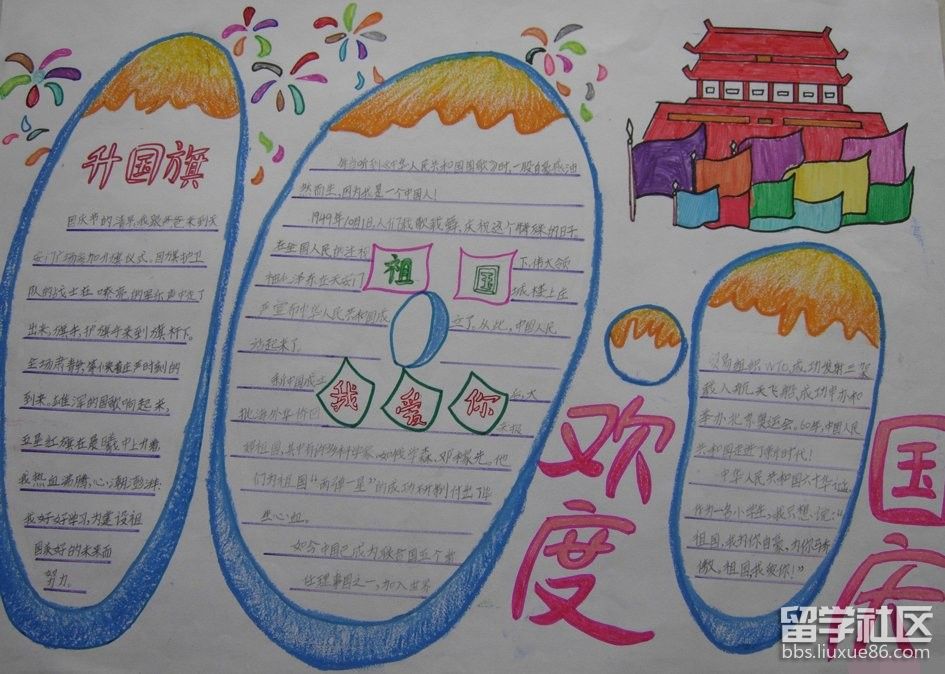 升国旗
国庆节的清早,我跟爸爸来到天
安门广场参加升旗仪式。国旗护卫
队的战士在嘹亮的军乐声中走了
出来,旗手,护旗手来到旗杆下。
全场肃静,等待着庄严时刻的
到来,雄浑的国歌响起来,
五星红旗在晨曦中上升着
我热血沸腾,心潮澎湃.
我好好学习,为建设祖
国美好的未来而
努力。
每当听到《中华人民共和国国歌》时,一股自豪感油
然而生,因为我是一个中国人!
1949年10月1日,人们载歌载舞,庆祝这个特殊的日子
在全国人民的注视下,伟大领
袖毛泽东在天安门城楼上庄
严宣布中华人民共和国成立了,从此,中国人民
站起来了。
新中国成立后,大
批海外华侨回
来报
祖国
我爱你
效祖国,其中有许多科学家,如钱学森、邓稼先。他
们为祖国“两弹一星”的成功研制付出了毕
生心血。
如今中国已成为联合国五个常
任理事国之一,加入世界
贸易组织WTO,成功发射三架
载人航天飞船,成功申办和
举办北京奥运会。60年,中国人民
共和国走进了新时代!
中华人民共和国六十华诞,
作为一名小学生,我只想说:“
祖国,我为你自豪,为你骄
傲。祖国,我爱你!”
欢度
国庆
留学社区
bbs.liuxue86.com